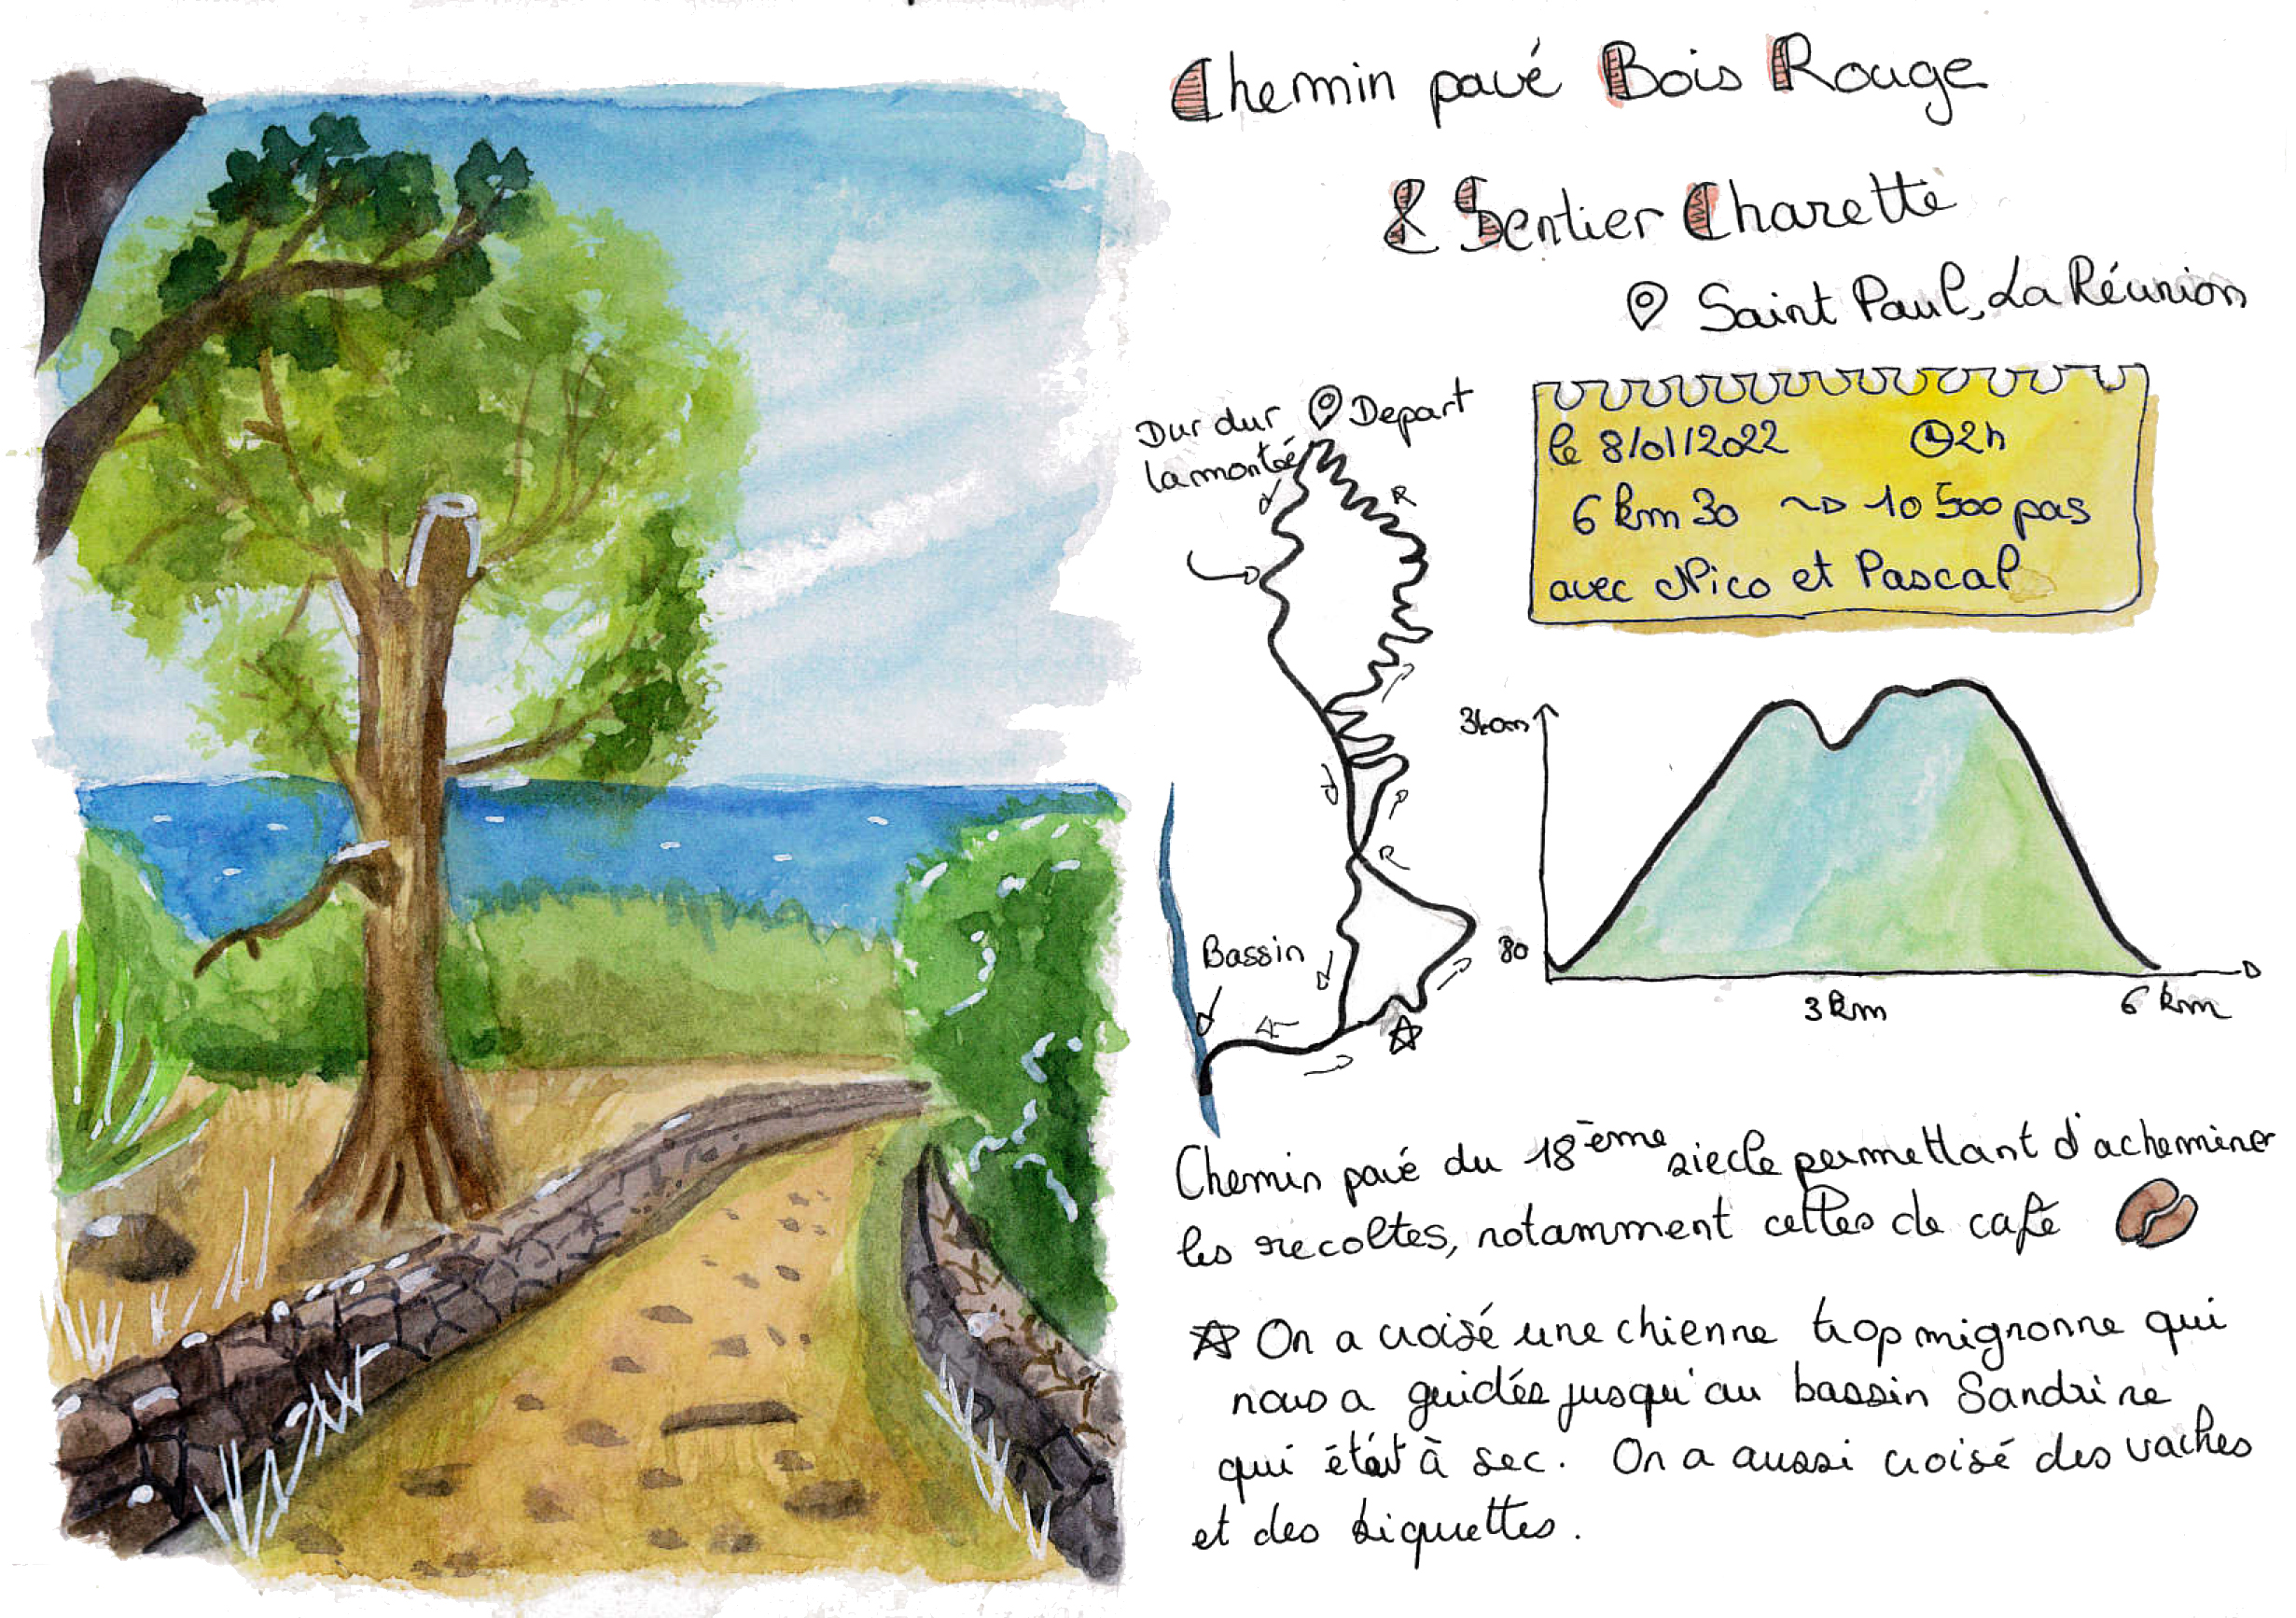 Chemin pavé Bois Rouge
& Sentier Charette
Saint Paul, La Réunion
Dur dur
la montée
Depart
le 8/01/2022 2h
6 km 30 ~> 10 500 pas
avec Nico et Pascal
340m
80
3 km
6 km
Bassin
Chemin pavé du 18ème siecle permettant d'acheminer
les recoltes, notamment celles de café
☆ On a croisé une chienne trop mignonne qui
nous a guidés jusqu'au bassin Sandrine
qui était à sec. On a aussi croisé des vaches
et des biquettes.